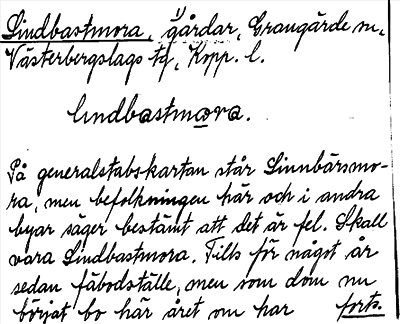 Lindbastmora, gårdar, Grangärde sn,
Västerbergslags tg, Kopp. l.
lindbastmora.
På generalstabskartan står Linnbärsmo-
ra, men befolkningen här och i andra
byar säger bestämt att det är fel. Skall
vara Lindbastmora. Tills för något år
sedan fäbodställe, men som dom nu
börjat bo här året om har forts.